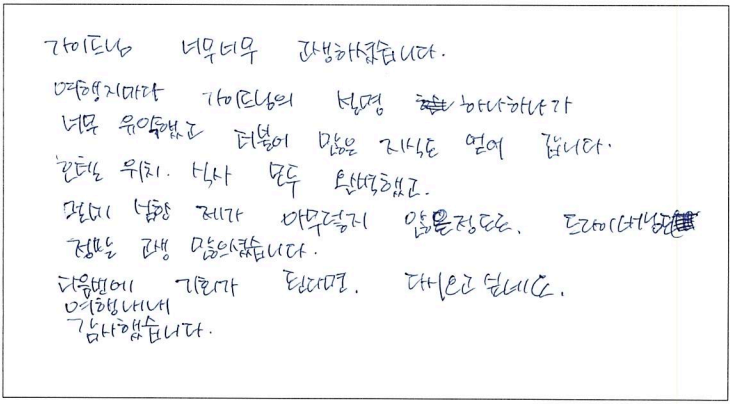 가이드님 너무너무 고생하셨습니다.
여행지마다 가이드님의 설명 하나하나가
너무 유익했고 더불어 많은 지식도 얻어 갑니다.
호텔 위치. 식사 모두 완벽했고.
제가 아무렇지 않은정도로. 드라이버님
정말 고생 많으셨습니다.
다음번에 기회가 된다면. 다시오고 싶네요.
여행내내
감사했습니다.